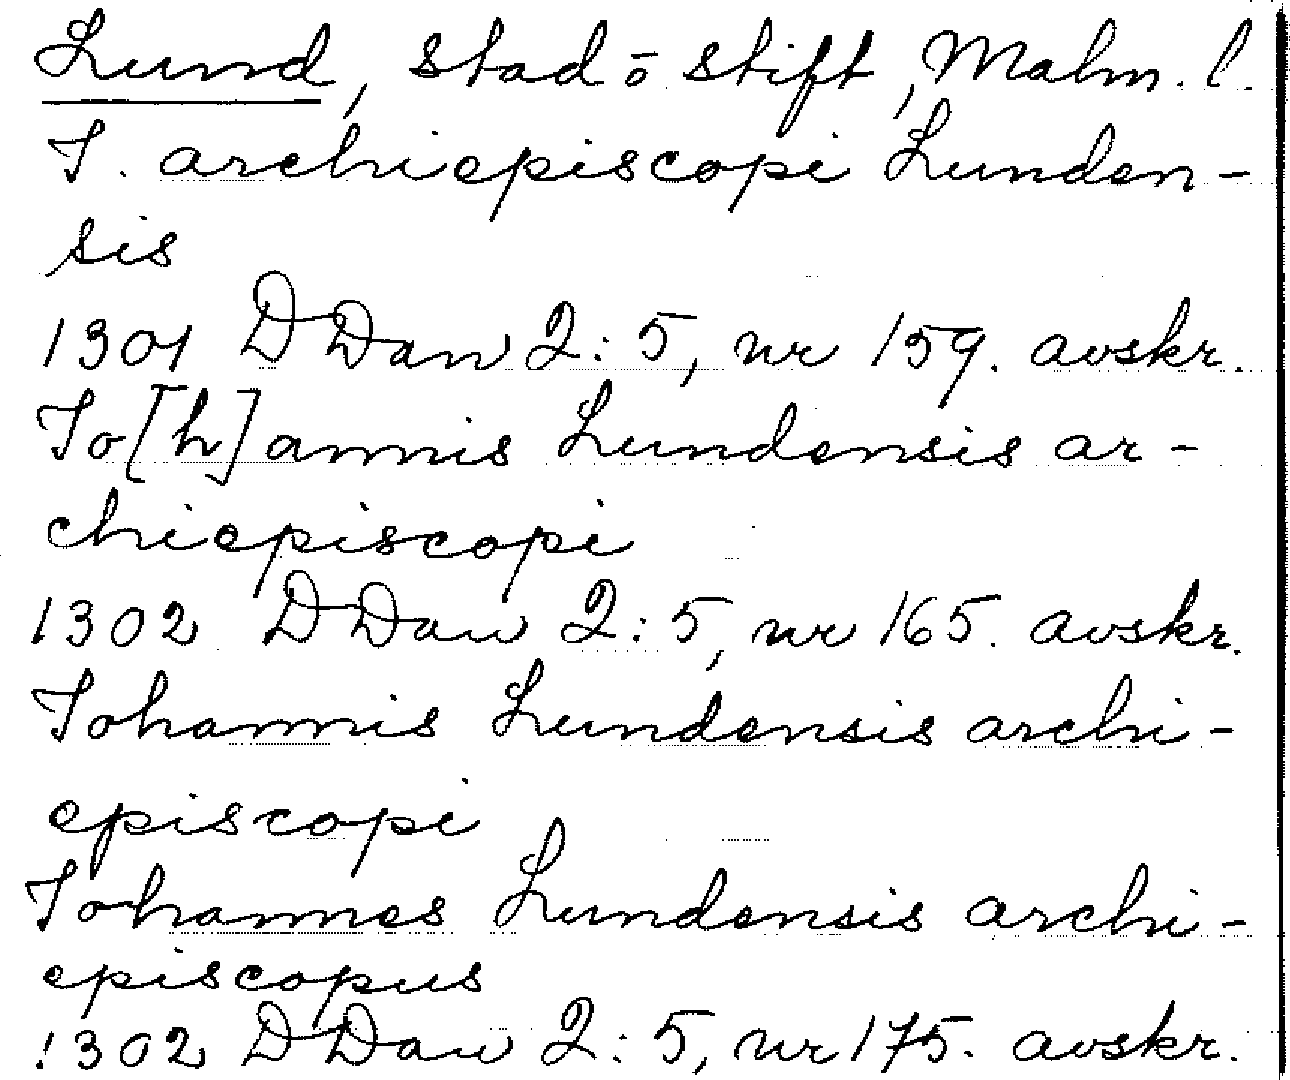 Lund, stad ō stift, Malm. l.
I. archiepiscopi Lunden-
sis
1301 DDan 2:5, nr 159. avskr.
Io[h]annis Lundensis ar-
chiepiscopi
1302 DDan 2:5, nr 165. avskr.
Iohannis Lundensis archi-
episcopi
Iohannes Lundensis archi-
episcopus
1302 DDan 2:5, nr 175. avskr.